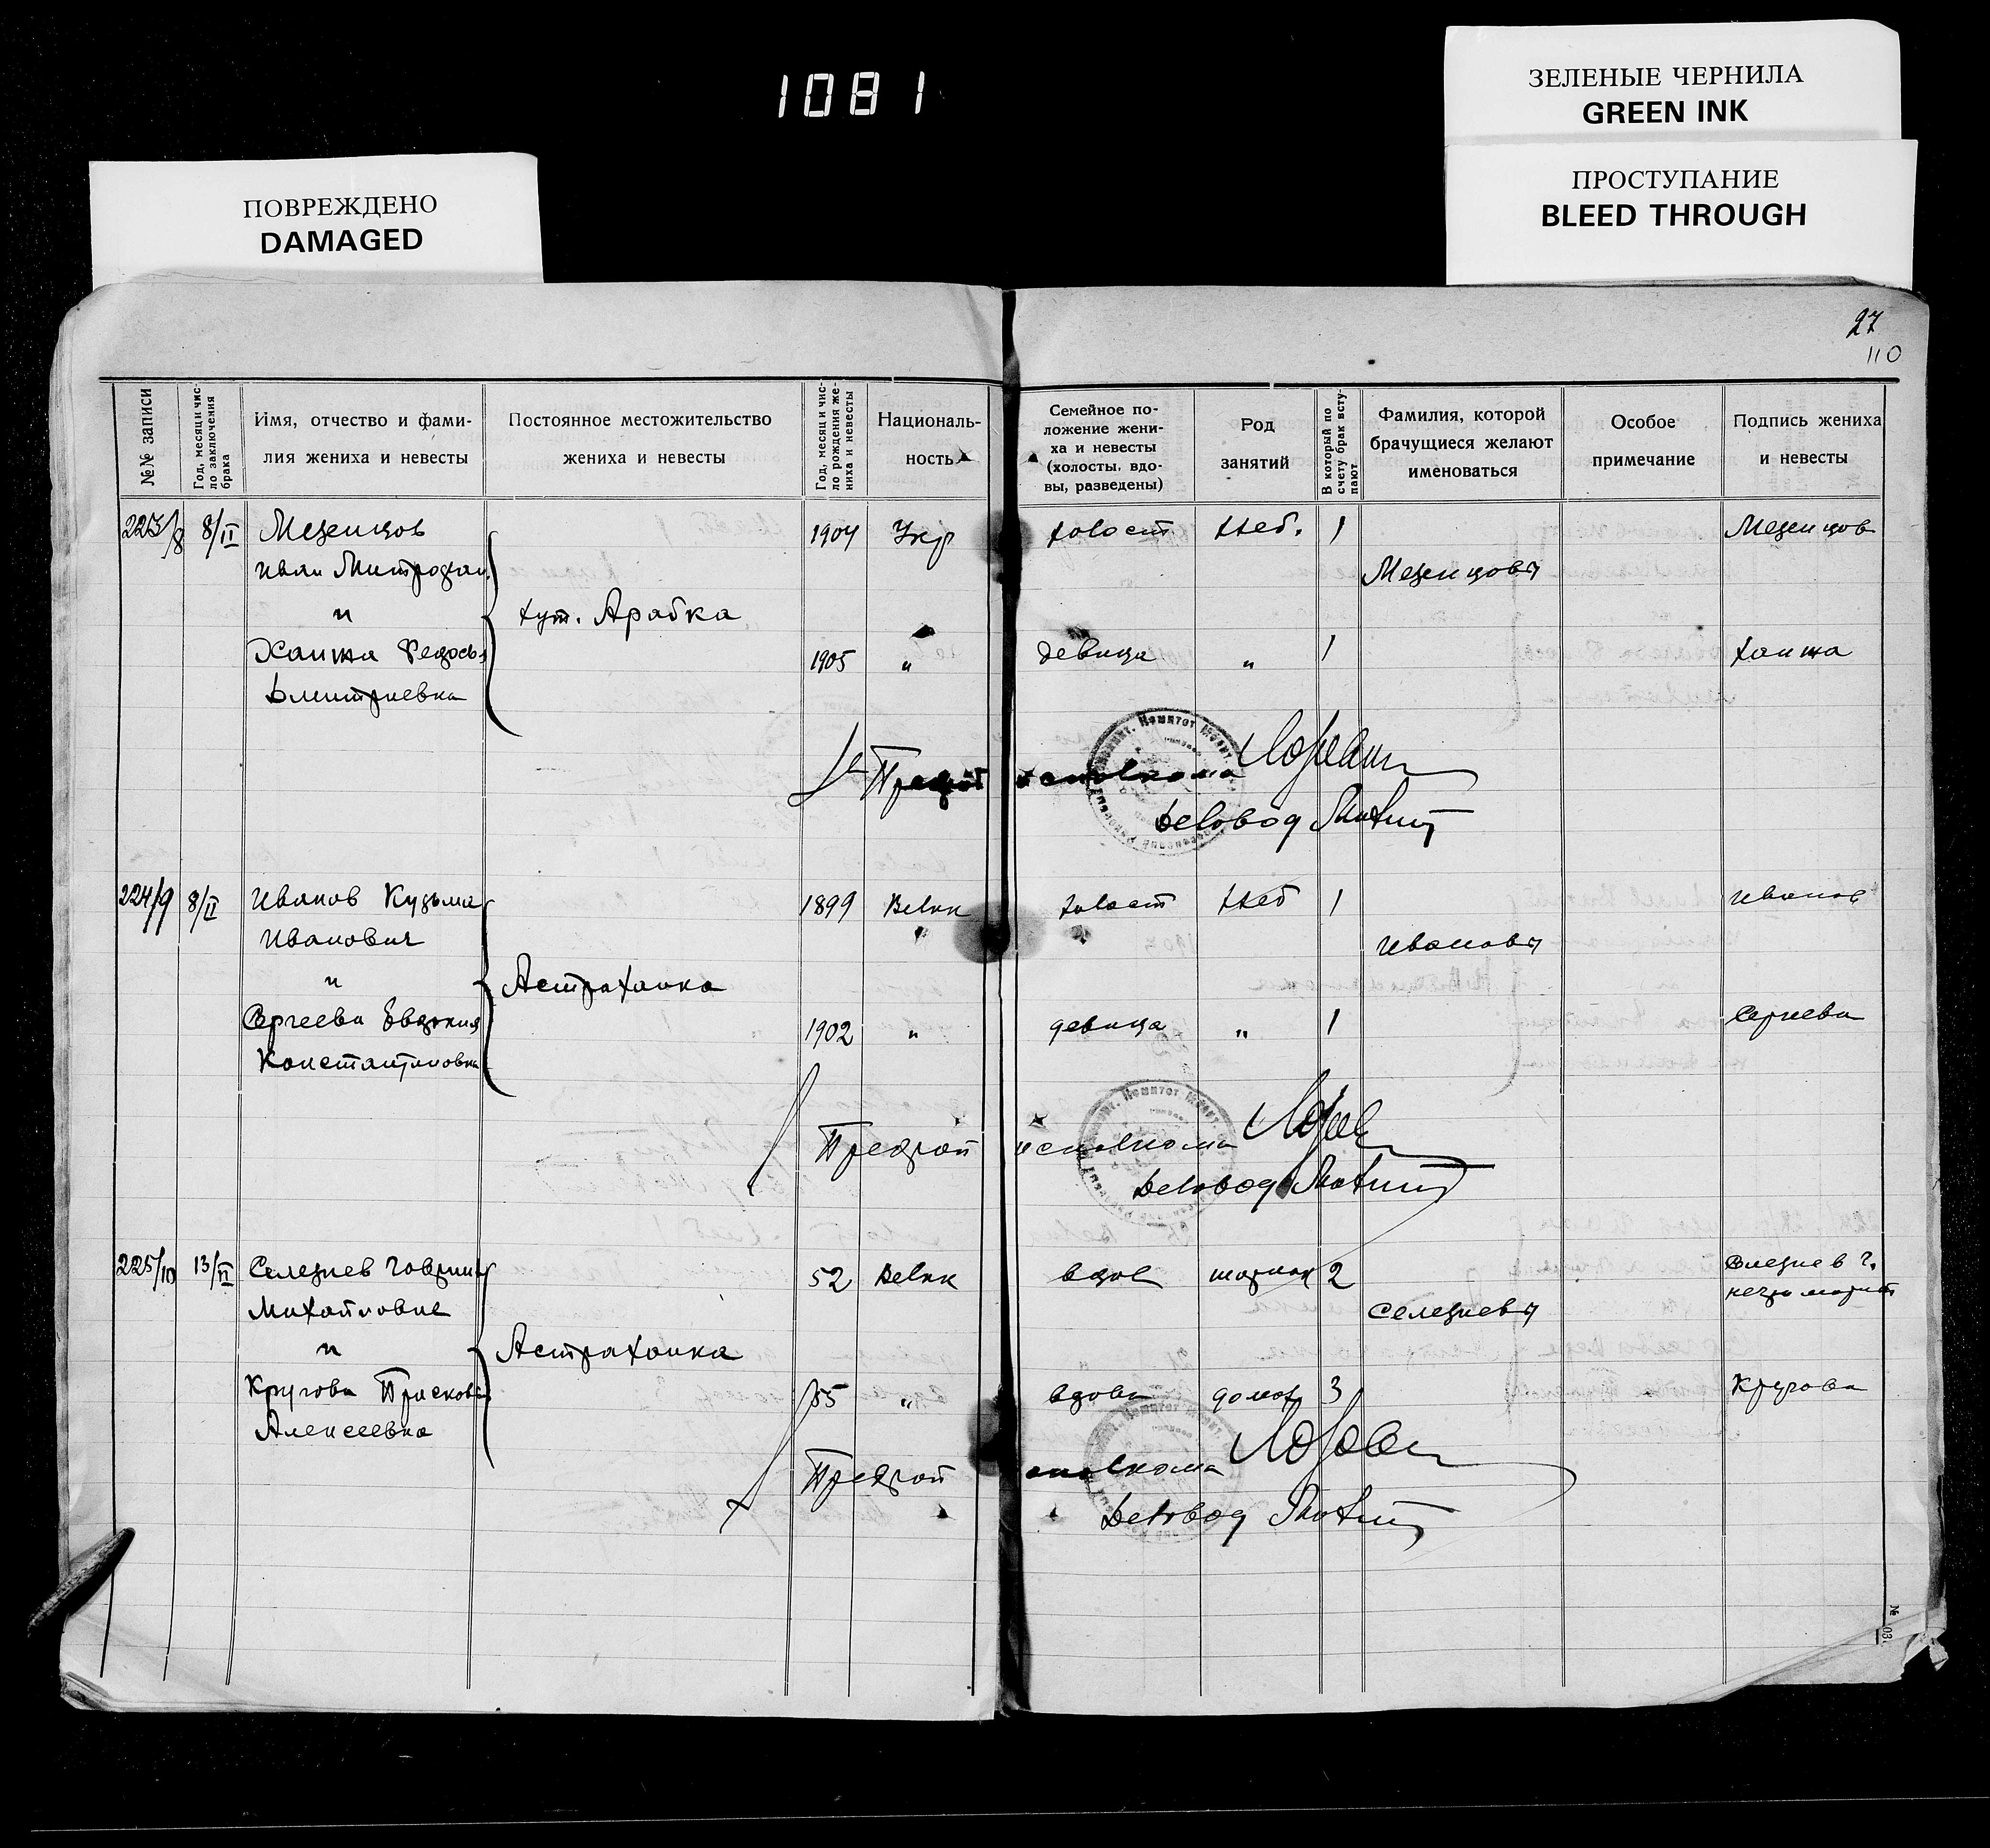 1081
ЗЕЛЕНЫЕ ЧЕРНИЛА
GREEN INK
ПРОСТУПАНИЕ
BLEED THROUGH
ПОВРЕЖДЕНО
DAMAGED
27
110
№№ записи
Год, месяц и чис-
ло заключения
брака
Имя, отчество и фами-
лия жениха и невесты
Постоянное местожительство
жениха и невесты
Год, месяц и чис-
ло рождения же-
ниха и невесты
Националь-
ность
Семейное по-
ложение жени-
ха и невесты
(холосты, вдо-
вы, разведены)
Род
занятий
В который по
счету брак всту-
пают
Фамилия, которой
брачущиеся желают
именоваться
Особое
примечание
Подпись жениха
и невесты
223/8 8/II Мезенцов 1904 Укр холост хлеб. 1 Мезенцов
Иван Митрофан. Мезенцовы
и хут. Арабка
Ханжа Федосья 1905 " девица " 1 Ханжа
Дмитриевна
Предрай исполкома
Деловод
224/9 8/II Иванов Кузьма 1899 Велик холост хлеб 1 Иванов
Иванович Ивановы
и Астраханка
Сергеева Евдокия 1902 " девица " 1 Сергеева
Константиновна
Предрай исполкома
Деловод
225/10 13/II Селезнев Гавриил 52 Велик вдов 2 Селезнев Г.
Михайлович Селезневы неграмотн
и Астраханка
Кругова Прасковья 55 " вдова домох 3 Кругова
Алексеевна
Предрай исполкома
Деловод